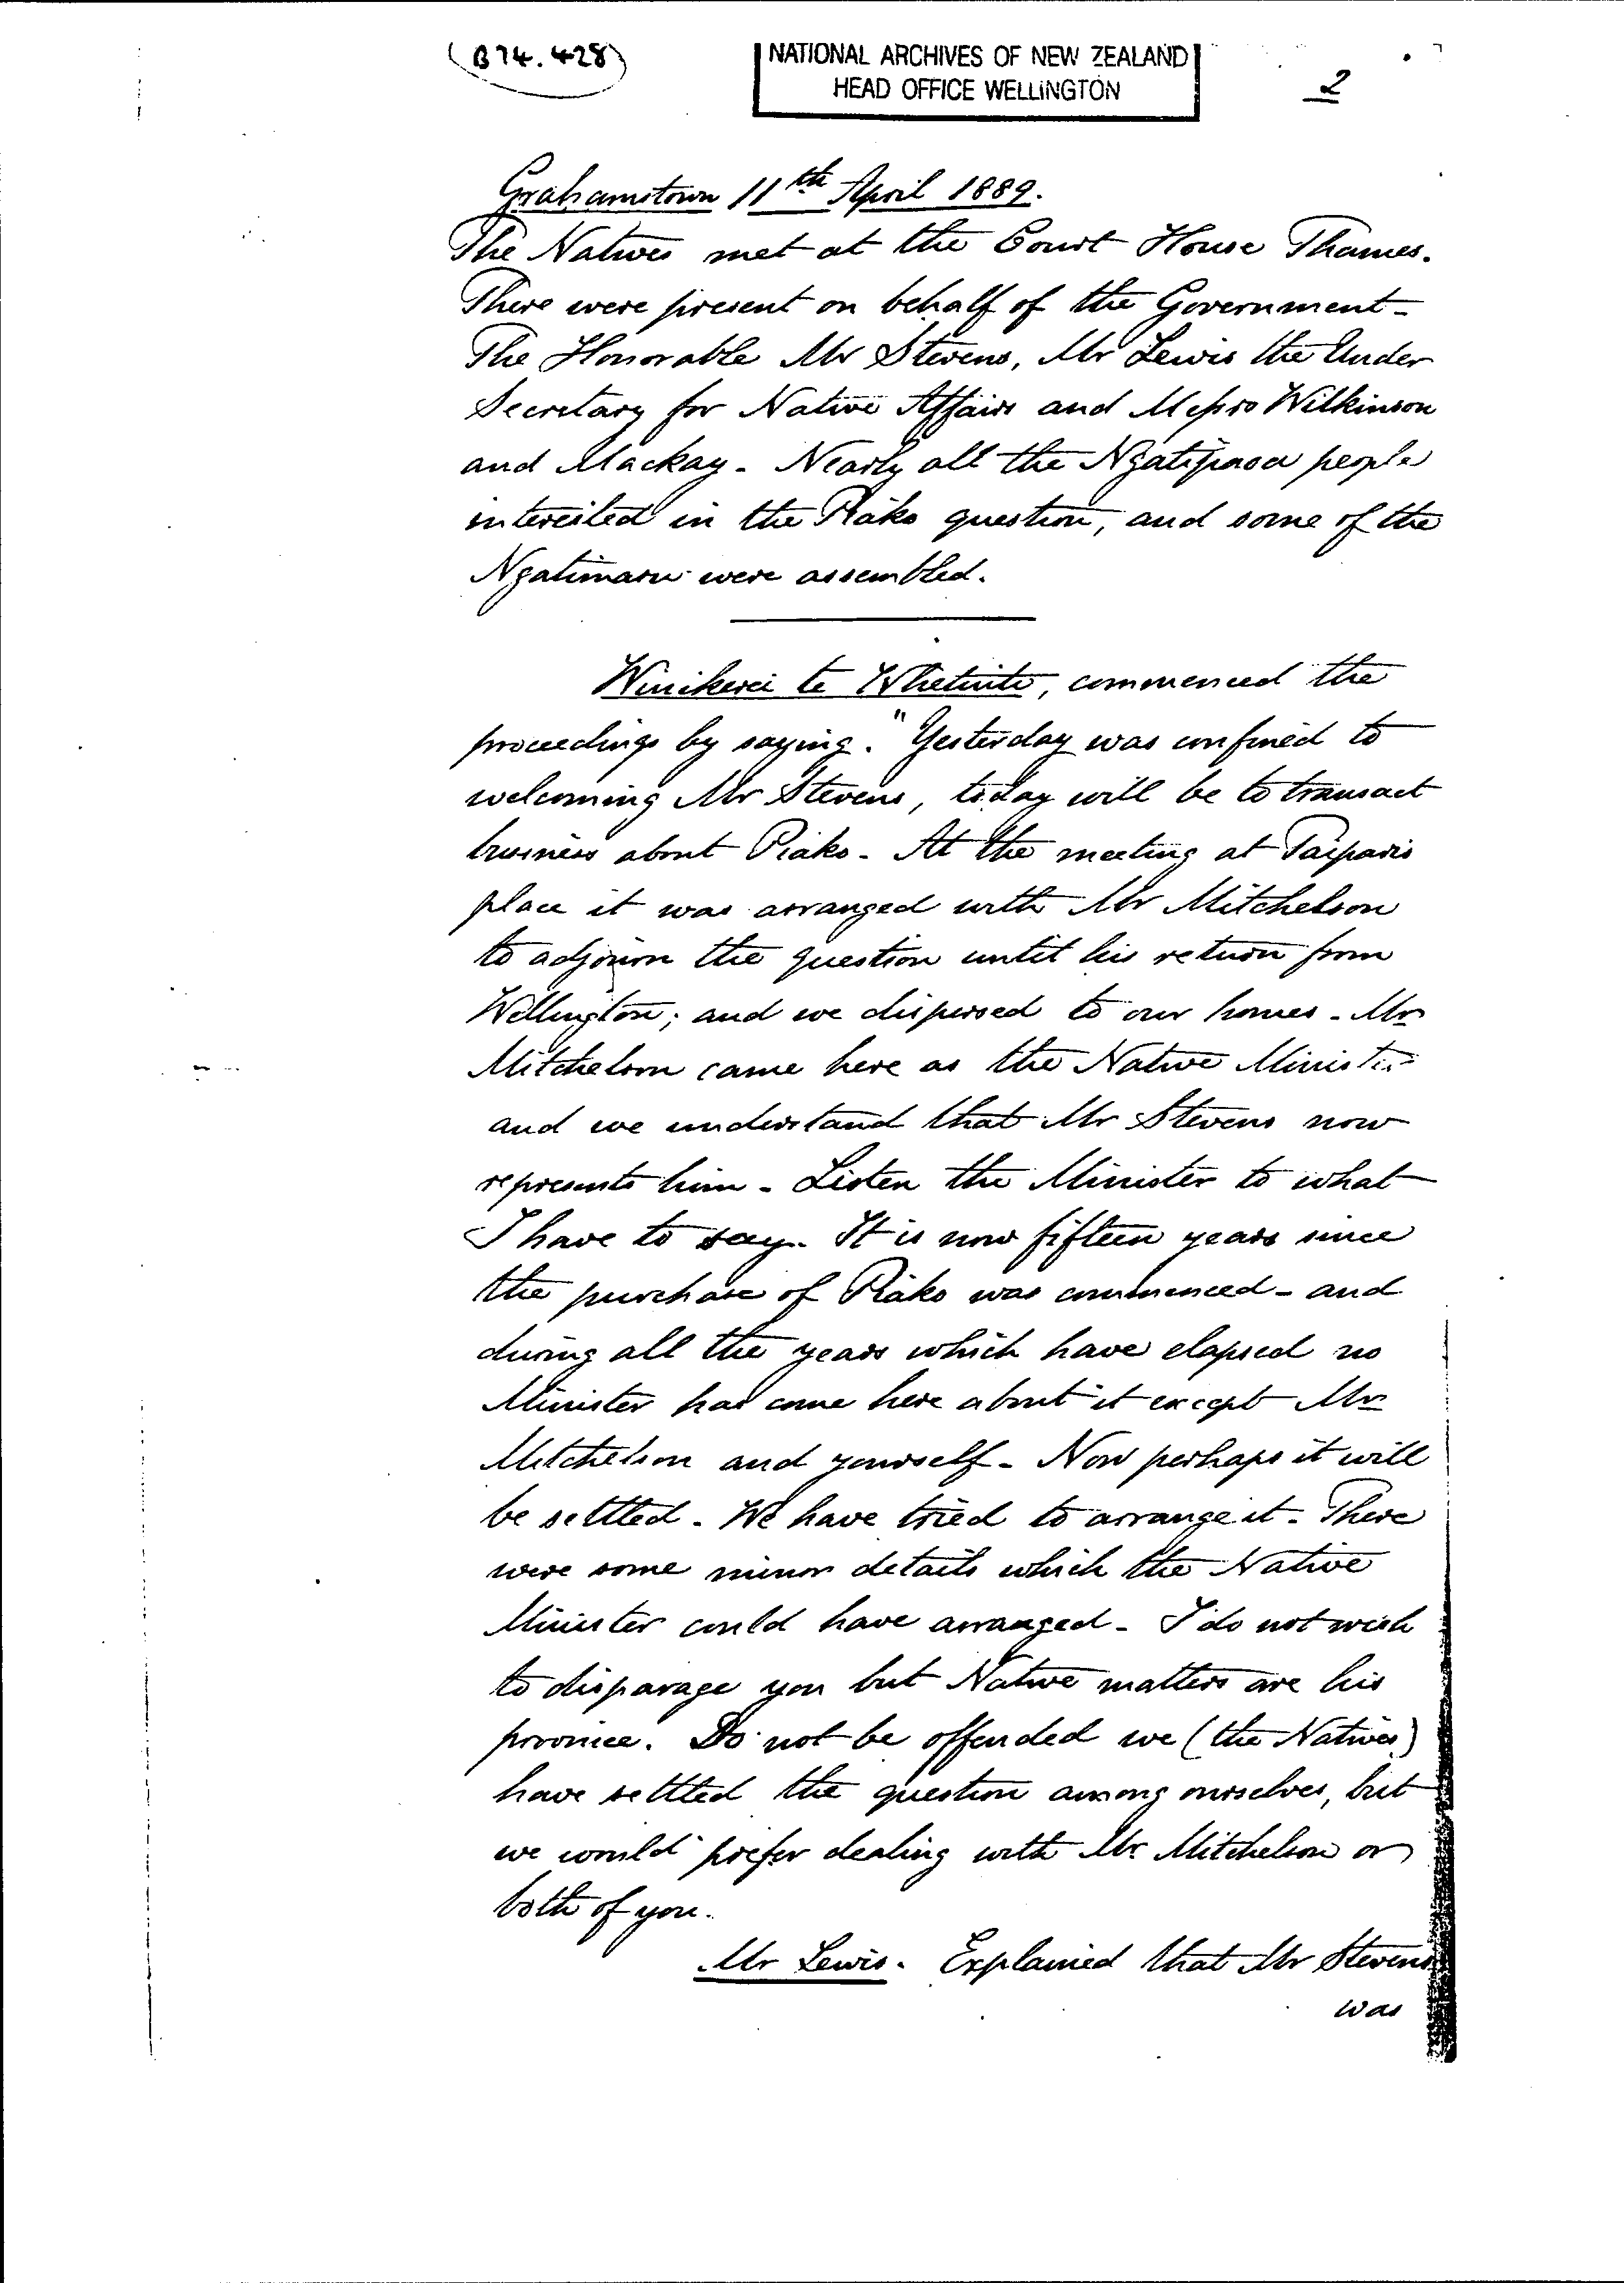 (B74.428)
NATIONAL ARCHIVES OF NEW ZEALAND
HEAD OFFICE WELLINGTON
2
Grahamstown 11th April 1889.
The Natives met at the Court House Thames.
There were present on behalf of the Government-
The Honorable Mr Stevens, Mr Lewis the Under
Secretary for Native Affairs and Messrs Wilkinson
and Mackay - Nearly all the Ngatipaoa people
interested in the Piako question, and some of the
Ngatimaru were assembled.
te Whetuiti, commenced the
proceedings by saying. "Yesterday was confined to
welcoming Mr Stevens, today will be to transact
business about Piako - At the meeting at Taiparis
place it was arranged with Mr Mitchelson
to adjourn the question until his return from
Wellington; and we dispersed to our homes - Mr
Mitchelson came here as the Native Minister
and we understand that Mr Stevens now
represents him - Listen the Minister to what
I have to say. It is now fifteen years since
the purchase of Piako was commenced - and
during all the years which have elapsed no
Minister has come here about it except Mr
Mitchelson and yourself - Now perhaps it will
be settled - We have tried to arrange it - There
were some minor details which the Native
Minister could have arranged - I do not wish
to disparage you but Native matters are his
province. Do not be offended we (the Natives)
have settled the question among ourselves, but
we would prefer dealing with Mr Mitchelson or
both of you.
Mr Lewis. Explained that Mr Stevens
was